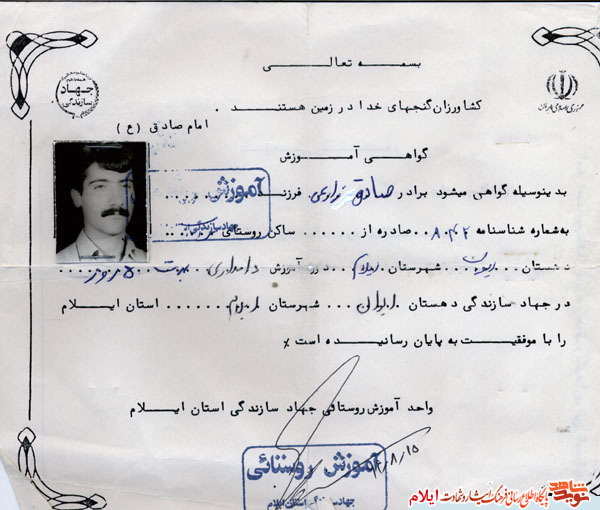 بسمه تعالی
جهاد سازندگی
جمهوری اسلامی ایران
کشاورزان گنجهای خدا در زمین هستند .
امام صادق (ع)
گواهی آموزش
بدینوسیله گواهی میشود برادر صادق فرزند
به‌شماره شناسنامه صادره از ...... ساکن روستای
دهستان شهرستان ایلام دوره آموزش دامداری بمدت روز
در جهاد سازندگی دهستان ... ایوان ... شهرستان ایلام .... استان ایلام
را با موفقیت به پایان رسانیده است ٪
واحد آموزش روستائی جهاد سازندگی استان ایلام
آموزش روستائی
جهاد سازندگی استان ایلام
۸/۱۵
آموزش
جهاد سازندگی
نوید شاهد
پایگاه اطلاع رسانی فرهنگ ایثار و شهادت ایلام